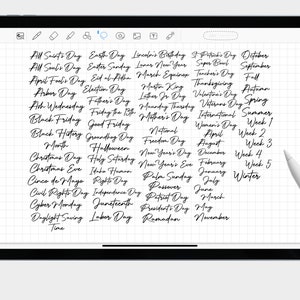 All Saint's Day
All Soul's Day
April Fool's Day
Arbor Day
Ash Wednesday
Black Friday
Black History
Month
Christmas Day
Christmas Eve
Cinco de Mayo
Civil Rights Day
Cyber Monday
Daylight Saving
Time
Earth Day
Easter Sunday
Eid al-Adha
Election Day
Father's Day
Friday the 13th
Good Friday
Groundhog Day
Halloween
Holy Saturday
Human
Rights Day
Independence Day
Juneteenth
Labor Day
Lincoln's Birthday
Lunar New Year
March Equinox
Martin King
Luther Jr's Day
Maundy Thursday
Mother's Day
National
Freedom Day
New Year's Day
New Year's Eve
Palm Sunday
Passover
Patriot Day
President's Day
Ramadan
St Patrick's Day
Super Bowl
Teacher's Day
Thanksgiving
Valentine's Day
Veterans Day
International
Women's Day
April
August
December
February
January
July
June
March
May
November
October
September
Fall
Autumn
Spring
Summer
Week 1
Week 2
Week 3
Week 4
Week 5
Winter